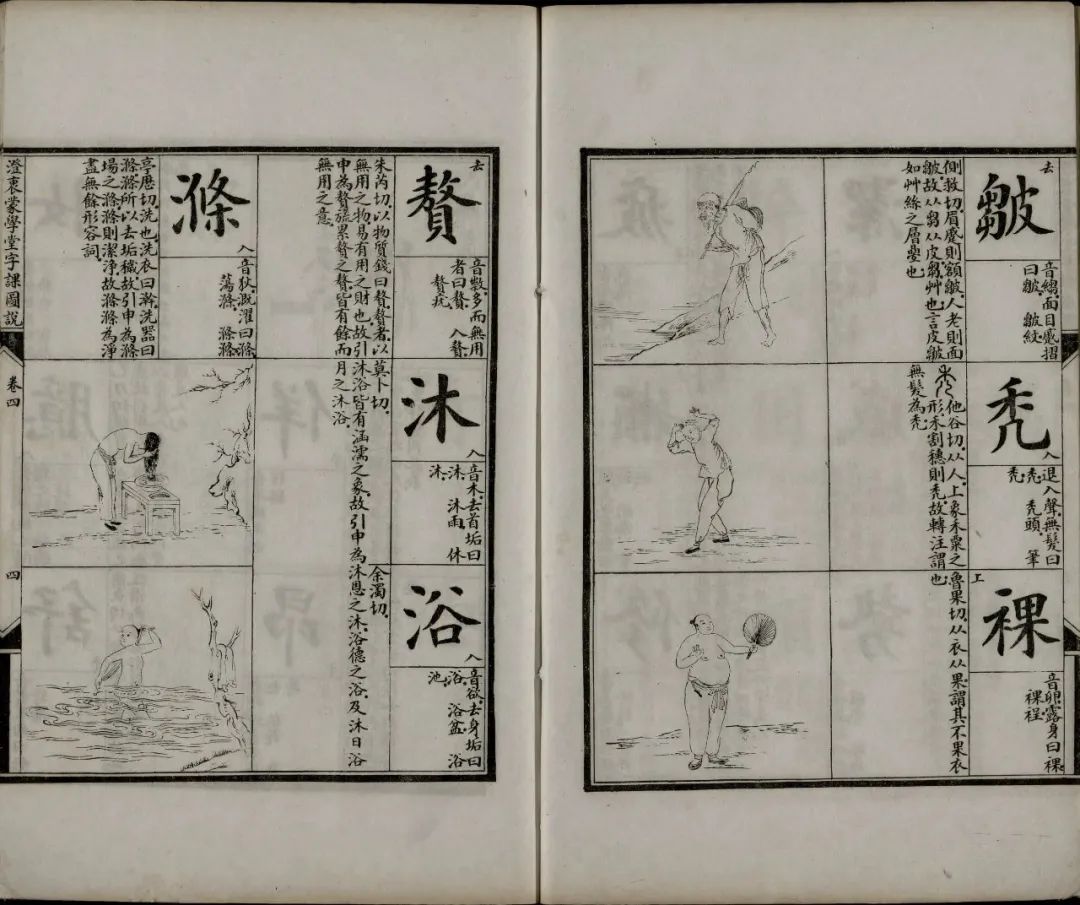 去
皺
音縐面目蹙摺
曰皺　皺紋
側救切眉蹙則額皺人老則面
皺故从芻从皮芻艸也言皮皺
如艸絲之層疊也
禿
入
退入聲無髮曰
禿　禿頭　筆
禿
他谷切从人上象禾粟之
形禾割穗則禿故轉注謂
無髮為禿
上
裸
音卵露身曰裸
裸裎
魯果切从衣从果謂其不果衣
也
去
贅
音惴多而無用
者曰贅　入贅
贅疣
朱芮切以物質錢曰贅贅者以
無用之物易有用之財也故引
申為贅旒累贅之贅皆有餘而
無用之意
沐
入
音木去首垢曰
沐　沐雨　休
沐
莫卜切
沐浴皆有涵濡之象故引申為沐恩之沐浴德之浴及沐日浴
月之沐浴
浴
入
音欲去身垢曰
浴　浴盆　浴
池
余濁切
滌
入
音狄溉濯曰滌
蕩滌　滌滌
亭歷切洗也洗衣曰澣洗器曰
滌滌所以去垢穢故引申為滌
場之滌滌則潔淨故滌滌為淨
盡無餘形容詞
澄衷蒙學堂字課圖說
卷四
四